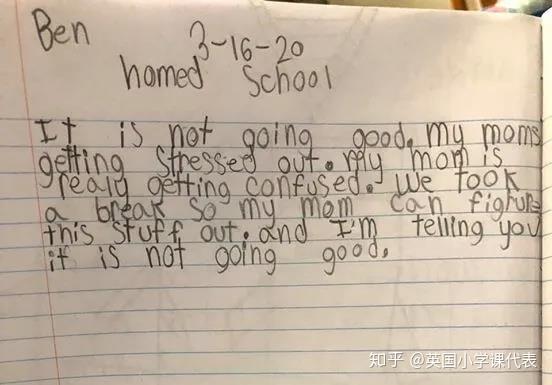 Ben
3-16-20
homed School
It is not going good. my moms
getting stressed out. My mom is
realy getting confused. We took
a break so my mom can fighure
this stuff out. and I'm telling you
it is not going good.
知乎 @英国小学课代表